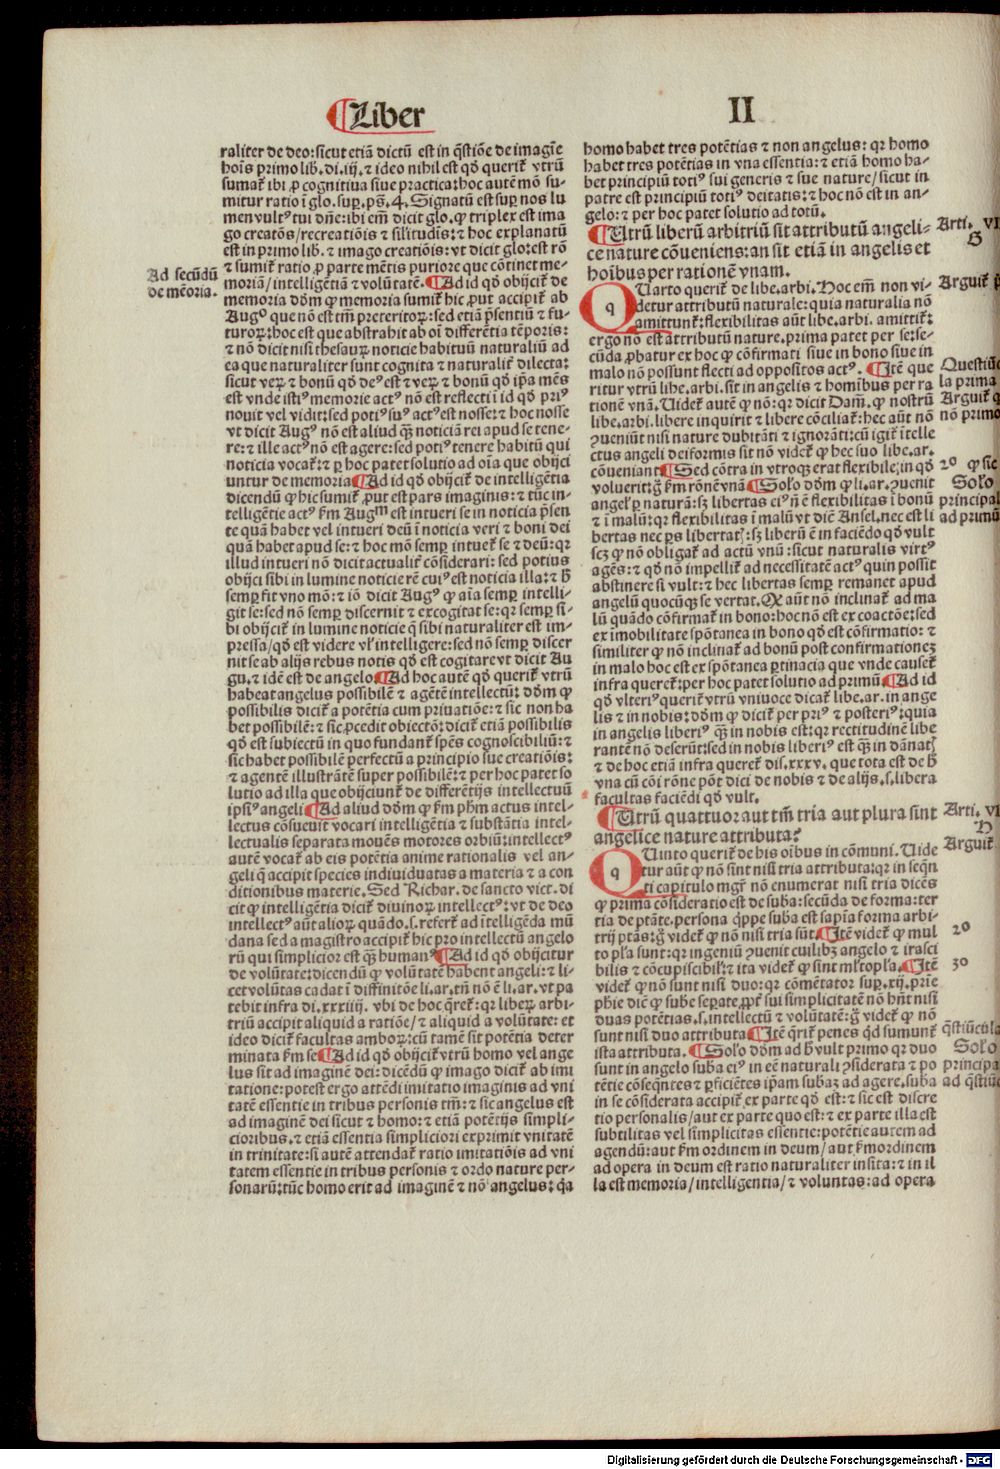 Liber
II
raliter de deo: sicut etiā dictū est in q̄stiōe de imagīe
hoīs primo lib. di. iij. ⁊ ideo nihil est qđ querit᷑ vtrū
sumat᷑ ibi ꝓ cognitiua siue practica: hoc autē mō su-
mitur ratio ī glo. sup. ps. 4. Signatū est sup nos lu
men vult᷒ tui dñe: ibi em̄ dicit glo. ꝙ triplex est ima
go creatōis / recreatiōis ⁊ sil'itudīs: ⁊ hoc explanatū
est in primo lib. ⁊ imago creatiōis: vt dicit glo: est rō
⁊ sumit᷑ ratio ꝓ parte mētis puriore que cōtinet me-
moriā / intelligētiā ⁊ volūtatē. ¶ Ad id qđ obijcit᷑ de
memoria dōm ꝙ memoria sumit᷑ hic ꝓut accipit᷑ ab
Aug° que nō est tm̄ preteritoꝝ: sed etiā p̄sentiū ⁊ fu-
turoꝝ: hoc est que abstrahit ab oī differētia tēporis:
⁊ nō dicit nisi thesauꝝ noticie habituū naturaliū ad
ea que naturaliter sunt cognita ⁊ naturalit᷑ dilecta:
sicut veꝝ ⁊ bonū qđ de᷒ est ⁊ veꝝ ⁊ bonū qđ ip̄a mēs
est vnde isti᷒ memorie act᷒ nō est reflecti ī id qđ pri᷒
nouit vel vidit: sed poti᷒ su᷒ act᷒ est nosse: ⁊ hoc nosse
vt dicit Aug᷒ nō est aliud q̄ꝫ noticiā rei apud se tene-
re: ⁊ ille act᷒ nō est agere: sed poti᷒ tenere habitū qui
noticia vocat᷑: ⁊ ꝑ hoc patet solutio ad oīa que obijci
untur de memoria ¶ Ad id qđ obijcit᷑ de intelligētia
dicendū ꝙ hic sumit᷑ ꝓut est pars imaginis: ⁊ tūc in-
telligētie act᷒ ẜm Augᵐ est intueri se in noticia p̄sen
te quā habet vel intueri deū ī noticia veri ⁊ boni dei
quā habet apud se: ⁊ hoc mō semꝑ intuet᷑ se ⁊ deū: qꝛ
illud intueri nō dicit actualit᷑ cōsiderari: sed potius
obijci sibi in lumine noticie rē cui᷒ est noticia illa: ⁊ ħ
semꝑ fit vno mō: ⁊ iō dicit Aug᷒ ꝙ aīa semꝑ intelli-
git se: sed nō semꝑ discernit ⁊ excogitat se: qꝛ semꝑ si-
bi obijcit᷑ in lumine noticie q̄ sibi naturaliter est im-
pressa / qđ est videre vl' intelligere: sed nō semꝑ discer
nit se ab alijs rebus notis qđ est cogitare vt dicit Au
gu. ⁊ idē est de angelo ¶ Ad hoc autē qđ querit᷑ vtrū
habeat angelus possibilē ⁊ agētē intellectū: dōm ꝙ
possibilis dicit᷑ a potētia cum priuatiōe: ⁊ sic non ha
bet possibilē: ⁊ sic ꝓcedit obiectō: dicit᷑ etiā possibilis
qđ est subiectū in quo fundant᷑ sp̄es cognoscibiliū: ⁊
sic habet possibilē perfectū a principio sue creatiōis:
⁊ agentē illustrātē super possibilē: ⁊ per hoc patet so
lutio ad illa que obijciunt᷑ de differētijs intellectuū
ipsi᷒ angeli ¶ Ad aliud dōm ꝙ ẜm ph̄m actus intel-
lectus cōsueuit vocari intelligētia ⁊ substātia intel-
lectualis separata mouēs motores orbiū: intellect᷒
autē vocat᷑ ab eis potētia anime rationalis vel an-
geli q̄ accipit species indiuiduatas a materia ⁊ a con
ditionibus materie. Sed Richar. de sancto vict. di
cit ꝙ intelligētia dicit᷑ diuinoꝝ intellect᷒: vt de deo
intellect᷒ aūt alioꝝ quādo. s. refert᷑ ad ītelligēda mū
dana sed a magistro accipit᷑ hic pro intellectū angelo
rū qui simplicior est q̄ꝫ human᷒ ¶ Ad id qđ obijcitur
de volūtate: dicendū ꝙ volūtatē habent angeli: ⁊ li-
cet volūtas cadat ī diffinitōe li. ar. tn̄ nō ē li. ar. vt pa
tebit infra di. xxiiij. vbi de hoc q̄ret᷑: qꝛ libeꝝ arbi-
triū accipit aliquid a ratiōe / ⁊ aliquid a volūtate: et
ideo dicit᷑ facultas amboꝝ: cū tamē sit potētia deter
minata ẜm se ¶ Ad id qđ obijcit᷑ vtrū homo vel ange
lus sit ad imaginē dei: dicēdū ꝙ imago dicit᷑ ab imi
tatione: potest ergo attēdi imitatio imaginis ad vni
tatē essentie in tribus personis tm̄: ⁊ sic angelus est
ad imaginē dei sicut ⁊ homo: ⁊ etiā potētijs simpli-
cioribus. ⁊ etiā essentia simpliciori exprimit vnitatē
in trinitate: si autē attendat᷑ ratio imitatiōis ad vni
tatem essentie in tribus personis ⁊ ordo nature per-
sonarū: tūc homo erit ad imaginē ⁊ nō angelus: q̄a
Ad secūdū
de mēoria.
homo habet tres potētias ⁊ non angelus: qꝛ homo
habet tres potētias in vna essentia: ⁊ etiā homo ha-
bet principiū toti᷒ sui generis ⁊ sue nature / sicut in
patre est principiū toti᷒ deitatis: ⁊ hoc nō est in an-
gelo: ⁊ per hoc patet solutio ad totū.
¶ Utrū liberū arbitriū sit attributū angeli-
ce nature cōueniens: an sit etiā in angelis et
hoībus per rationē vnam.
Quarto querit᷑ de libe. arbi. Hoc em̄ non vi-
detur attributū naturale: quia naturalia nō
amittunt᷑: flexibilitas aūt libe. arbi. amittit᷑:
ergo nō est attributū nature. prima patet per se: se-
cūda ꝓbatur ex hoc ꝙ cōfirmati siue in bono siue in
malo nō possunt flecti ad oppositos act᷒. ¶ Itē que
ritur vtrū libe. arbi. sit in angelis ⁊ homībus per ra
tionē vnā. Uidet᷑ autē ꝙ nō: qꝛ dicit Dam̄. ꝙ nostrū
libe. arbi. libere inquirit ⁊ libere cōciliat᷑: hec aūt nō
ꝯueniūt nisi nature dubitāti ⁊ ignorāti: cū igit᷑ ītelle
ctus angeli deiformis sit nō videt᷑ ꝙ hec suo libe. ar.
cōueniant ¶ Sed cōtra in vtroqꝫ erat flexibile, in qđ
voluerit: g̊ ẜm rōnē vnā ¶ Sol'o dōm ꝙ li. ar. ꝯuenit
angel' ꝑ naturā: sꝫ libertas ei᷒ n̄ ē flexibilitas ī bonū
⁊ ī malū: qꝛ flexibilitas ī malū vt diē Ansel. nec est li
bertas nec ꝑs libertat᷑: sꝫ liberū ē in faciēdo qđ vult
scꝫ ꝙ nō obligat᷑ ad actū vnū: sicut naturalis virt᷒
agēs: ⁊ qđ nō impellit᷑ ad necessitatē act᷒ quin possit
abstinere si vult: ⁊ hec libertas semꝑ remanet apud
angelū quocūqꝫ se vertat. Qꝛ aūt nō inclinat᷑ ad ma
lū quādo cōfirmat᷑ in bono: hoc nō est ex coactōe: sed
ex imobilitate spōtanea in bono qđ est cōfirmatio: ⁊
similiter ꝙ nō inclinat᷑ ad bonū post confirmationeꝫ
in malo hoc est ex spōtanea ꝑtinacia que vnde causet᷑
infra queret᷑: per hoc patet solutio ad primū. ¶ Ad id
qđ vlteri᷒ querit᷑ vtrū vniuoce dicat᷑ libe. ar. in ange
lis ⁊ in nobis: dōm ꝙ dicit᷑ per pri᷒ ⁊ posteri᷒: quia
in angelis liberi᷒ q̄ꝫ in nobis est: qꝛ rectitudinē libe
rantē nō deserūt: sed in nobis liberi᷒ est q̄ꝫ in dānat᷑
⁊ de hoc etiā infra queret᷑ dis. xxxv. que tota est de ħ
vna cū cōi rōne pōt dici de nobis ⁊ de alijs. s. libera
facultas faciēdi qđ vult.
¶ Utrū quattuor aut tm̄ tria aut plura sint
angelice nature attributa?
Quinto querit᷑ de his oībus in cōmuni. Uide
tur aūt ꝙ nō sint nisi tria attributa: qꝛ in seq̄n
ti capitulo mgr̄ nō enumerat nisi tria dicēs
ꝙ prima cōsideratio est de suba: secūda de forma: ter
tia de ptāte. persona q̄ppe suba est sapīa forma arbi-
trij ptās: g̊ videt᷑ ꝙ nō nisi tria sūt. ¶ Itē videt᷑ ꝙ mul
to pl'a sunt: qꝛ ingeniū ꝯuenit cuilibꝫ angelo ⁊ irasci
bilis ⁊ cōcupiscibil': ⁊ ita videt᷑ ꝙ sint ml'to pl'a. ¶ Itē
videt᷑ ꝙ nō sunt nisi duo: qꝛ cōmētator sup. xij. prīe
ph̄ie diē ꝙ sub̄e seꝑate, ꝓpt᷑ sui simplicitatē nō hn̄t nisi
duas potētias. s. intellectū ⁊ volūtatē: g̊ videt᷑ ꝙ nō
sunt nisi duo attributa ¶ Itē q̄rit᷑ penes qđ sumunt᷑
ista attributa. ¶ Sol'o dōm ad ħ vult primo qꝛ duo
sunt in angelo suba ei᷒ in eē naturali ꝯsiderata ⁊ po
tētie cōseq̄ntes ⁊ ꝑficiētes ip̄am subaꝫ ad agere. suba
in se cōsiderata accipit᷑ ex parte qđ est: ⁊ sic est discre
tio personalis / aut ex parte quo est: ⁊ ex parte illa est
subtilitas vel simplicitas essentie: potētie autem ad
agendū: aut ẜm ordinem in deum / aut ẜm ordinem
ad opera in deum est ratio naturaliter insita: ⁊ in il
la est memoria / intelligentia / ⁊ voluntas: ad opera
Arti. VI
Arguit᷑ p
Questiūc
la prima
Arguit᷑ q
nō primo
2° ꝙ sic
Sol'o
principal
ad primū
Arti. VI
Arguit᷑
2°
3°
q̄stiūcula
Sol'o
principa
ad q̄stiūc
Digitalisierung gefördert durch die Deutsche Forschungsgemeinschaft - DFG